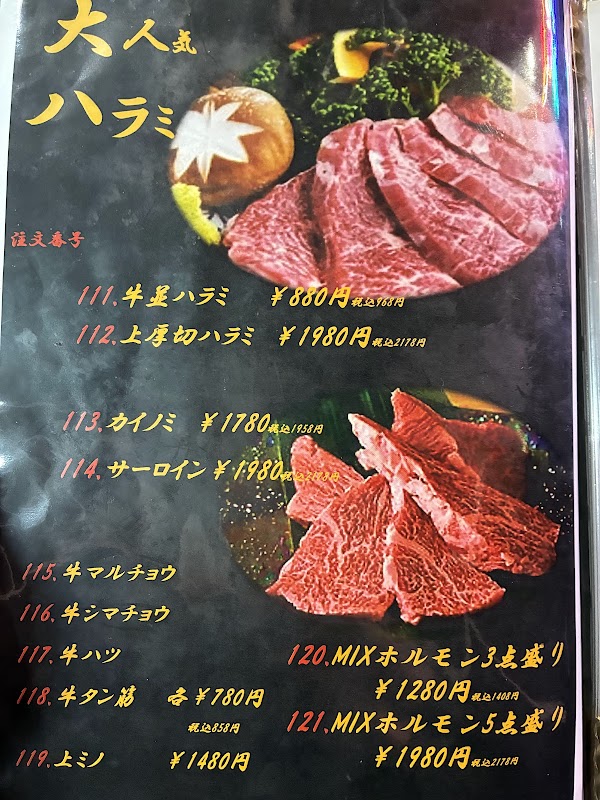 大人気
ハラミ
注文番号
111.牛並ハラミ ¥880円税込968円
112.上厚切ハラミ ¥1980円税込2178円
113.カイノミ ¥1780税込1958円
114.サーロイン¥1980税込2178円
115.牛マルチョウ
116.牛シマチョウ
117.牛ハツ
118.牛タン筋 各¥780円
税込858円
119.上ミノ ¥1480円
120.MIXホルモン3点盛り
¥1280円税込1408円
121.MIXホルモン5点盛り
¥1980円税込2178円